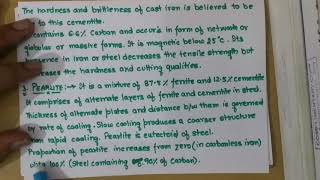 The hardness and brittleness of cast iron is believed to be
to this cementite.
contains 6.6% Carbon and occurs in form of network or
globulus or massive forms. It is magnetic below 25°c. Its
in iron or steel decreases the tensile strength but
the hardness and cutting qualities.
PEARLITE:→ It is a mixture of 87.5% ferrite and 12.5% cementite
It comprises of alternate layers of ferrite and cementite in steel.
Thickness of alternate plates and distance b/w them is governed
by rate of cooling. Slow cooling produces a coarser structure
than rapid cooling. Pearlite is eutectoid of steel.
Proportion of pearlite increases from zero (in carbonless iron)
100% (Steel containing .90% of carbon).